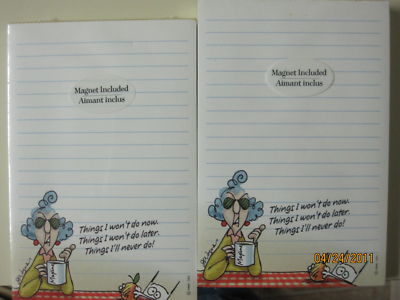 Magnet Included
Aimant inclus
Things I won't do now.
Things I won't do later.
Things I'll never do!
Maxine
Magnet Included
Aimant inclus
Things I won't do now.
Things I won't do later.
Things I'll never do!
Maxine
04/24/2011